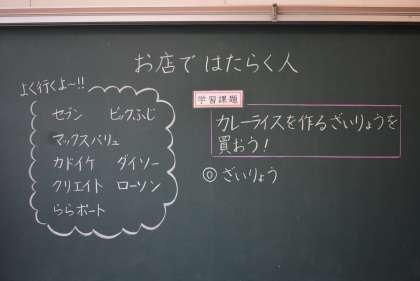 お店で はたらく人
よく行くよ〜!!
セブン ビックふじ
マックスバリュ
カドイケ ダイソー
クリエイト ローソン
ららポート
学習課題
カレーライスを作るざいりょうを
買おう!
◎ ざいりょう